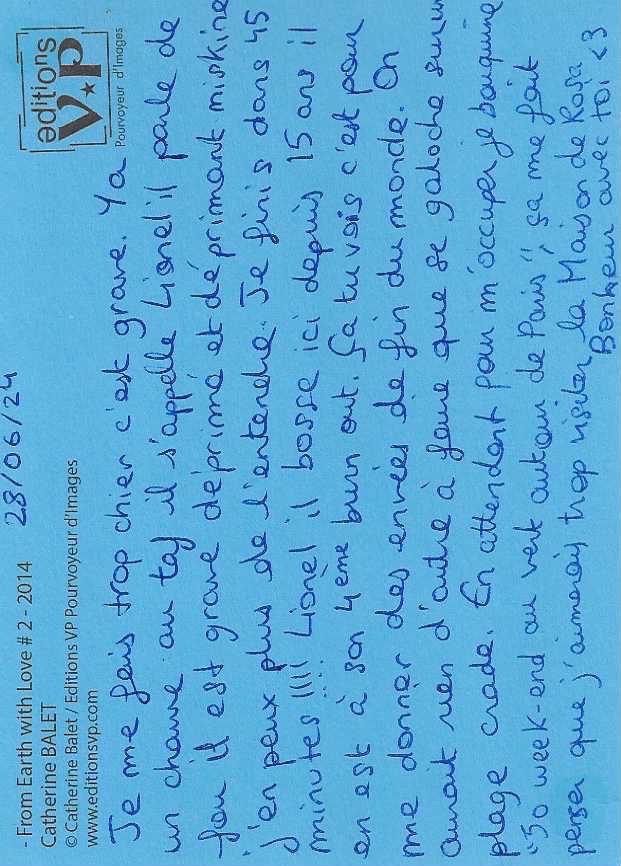 - From Earth with Love # 2 - 2014
Catherine BALET
© Catherine Balet / Editions VP Pourvoyeur d'Images
www.editionsvp.com
28/06/24
editions
V★P
Pourvoyeur d'Images
Je me fais trop chier c'est grave. Ya
un chauve au taf il s'appelle Lionel il parle de
fou il est grave déprimé et déprimant miskine
j'en peux plus de l'entendre. Je finis dans 45
minutes !!!! Lionel il bosse ici depuis 15 ans il
en est à son 4ème burn out. Ça tu vois c'est pour
me donner des envies de fin du monde. On
aurait rien d'autre à faire que se galoche sur un
plage crade. En attendant pour m'occuper je bouquine
"50 week-end au vert autour de Paris", ça me fait
penser que j'aimerais trop visiter la Maison de Rosa
Bonheur avec toi <3